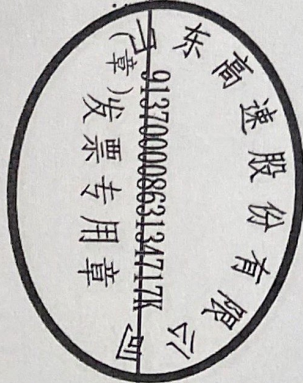 山东高速股份有限公司
91370000863134717K
(章)
发票专用章